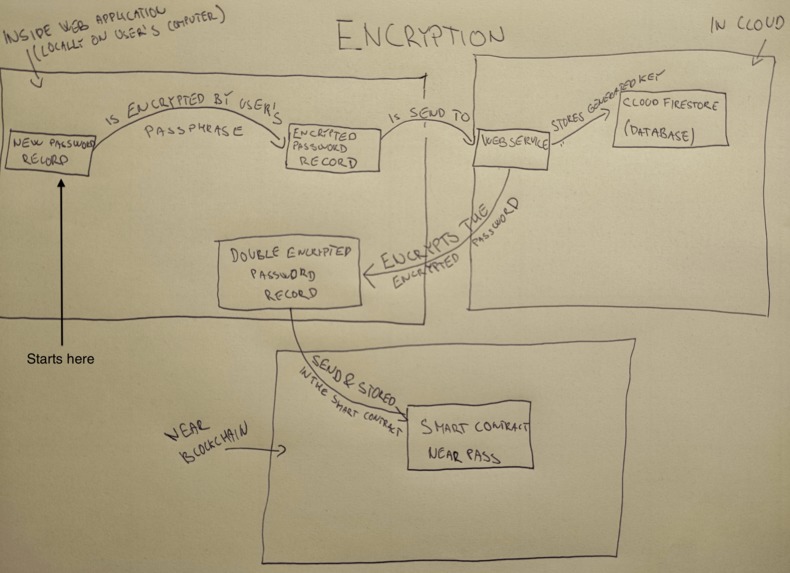 ENCRYPTION
INSIDE WEB APPLICATION
(LOCALLY ON USER'S COMPUTER)
IN CLOUD
NEW PASSWORD
RECORD
IS ENCRYPTED BY USER'S
PASSPHRASE
ENCRYPTED
PASSWORD
RECORD
IS SEND TO
WEB SERVICE
STORES GENERATED KEY
CLOUD FIRESTORE
(DATABASE)
ENCRYPTS THE
ENCRYPTED PASSWORD
DOUBLE ENCRYPTED
PASSWORD
RECORD
Starts here
SEND & STORED
IN THE SMART CONTRACT
NEAR
BLOCKCHAIN
SMART CONTRACT
NEAR PASS